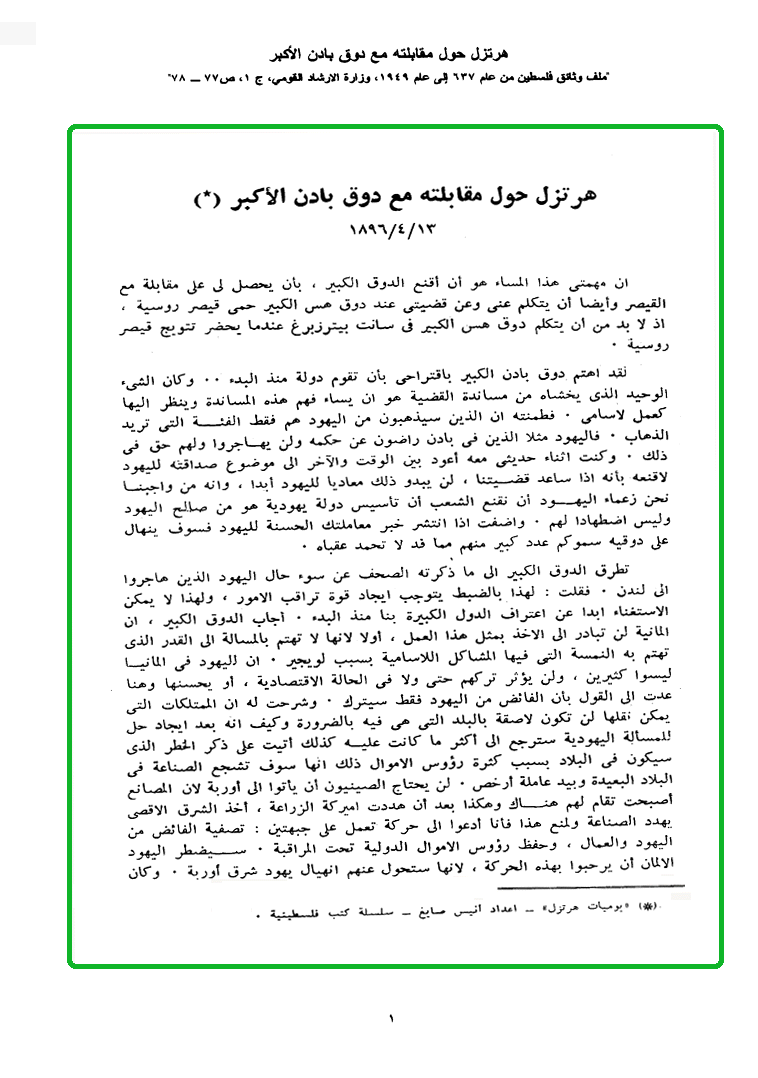 هرتزل حول مقابلته مع دوق بادن الأكبر
"ملف وثائق فلسطين من عام ٦٣٧ إلى عام ١٩٤٩، وزارة الارشاد القومي، ج ١، ص٧٧ ــ ٧٨"
هرتزل حول مقابلته مع دوق بادن الأكبر (*)
١٨٩٦/٤/١٣
ان مهمتى هذا المساء هو أن أقنع الدوق الكبير ، بأن يحصل لى على مقابلة مع
القيصر وأيضا أن يتكلم عنى وعن قضيتى عند دوق هس الكبير حمى قيصر روسية ،
اذ لا بد من أن يتكلم دوق هس الكبير فى سانت بيترزبرغ عندما يحضر تتويج قيصر
روسية ٠
لقد اهتم دوق بادن الكبير باقتراحى بأن تقوم دولة منذ البدء ٠٠ وكان الشىء
الوحيد الذى يخشاه من مساندة القضية هو ان يساء فهم هذه المساندة وينظر اليها
كعمل لاسامى ٠ فطمنته ان الذين سيذهبون من اليهود هم فقط الفئــة التى تريد
الذهاب ٠ فاليهود مثلا الذين فى بادن راضون عن حكمه ولن يهـاجروا ولهم حق فى
ذلك ٠ وكنت اثناء حديثى معه أعود بين الوقت والآخر الى موضوع صداقته لليهود
لاقنعه بأنه اذا ساعد قضـيتنا ، لن يبدو ذلك معاديا لليهود أبدا ، وانه من واجبنـا
نحن زعماء اليهـود أن نقنع الشعب أن تأسيس دولة يهودية هو من صالح اليهود
وليس اضطهادا لهم ٠ واضفت اذا انتشر خبر معاملتك الحسنة لليهود فسوف ينهال
على دوقيه سموكم عدد كبير منهم مما قد لا تحمد عقباه ٠
تطرق الدوق الكبير الى ما ذكرته الصحف عن سوء حال اليهود الذين هاجروا
الى لندن ٠ فقلت : لهذا بالضبط يتوجب ايجاد قوة تراقب الامور ، ولهذا لا يمكن
الاستغناء ابدا عن اعتراف الدول الكبيرة بنا منذ البدء ٠ أجاب الدوق الكبير ، ان
المانية لن تبادر الى الاخذ بمثل هذا العمل ، أولا لانها لا تهتم بالمسالة الى القدر الذى
تهتم به النمسة التى فيها المشاكل اللاسامية بسبب لويجير ٠ ان لليهود فى المانيـا
ليسوا كثيرين ، ولن يؤثر تركهم حتى ولا فى الحالة الاقتصادية ، أو يحسنها وهنا
عدت الى القول بأن الفائض من اليهود فقط سيترك ٠ وشرحت له ان الممتلكات التى
يمكن نقلها لن تكون لاصقة بالبلد التى هى فيه بالضرورة وكيف انه بعد ايجاد حل
للمسألة اليهودية سترجع الى أكثر ما كانت عليـه كذلك أتيت على ذكر الخطر الذى
سيكون فى البلاد بسبب كثرة رؤوس الاموال ذلك انها سوف تشجع الصناعة فى
البلاد البعيدة وبيد عاملة أرخص ٠ لن يحتاج الصينيون أن يأتوا الى أوربة لان المصانع
أصبحت تقام لهم هنـاك وهكذا بعد أن هددت اميركة الزراعة ، أخذ الشرق الاقصى
يهدد الصناعة ولمنع هذا فأنا أدعوا الى حركة تعمل على جبهتين : تصفية الفائض من
اليهود والعمال ، وحفظ رؤوس الاموال الدولية تحت المراقبة ٠ ســيضطر اليهود
الالمان أن يرحبوا بهذه الحركة ، لانها ستحول عنهم انهيال يهود شرق أوربة ٠ وكان
(*) «يوميات هرتزل» ــ اعداد أنيس صايغ ــ سلسلة كتب فلسطينية ٠
١